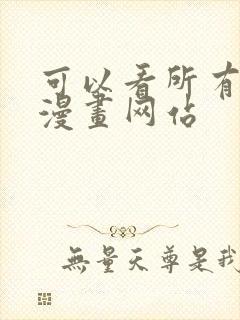 可以看所有
漫畫网佔
無量天尊是我